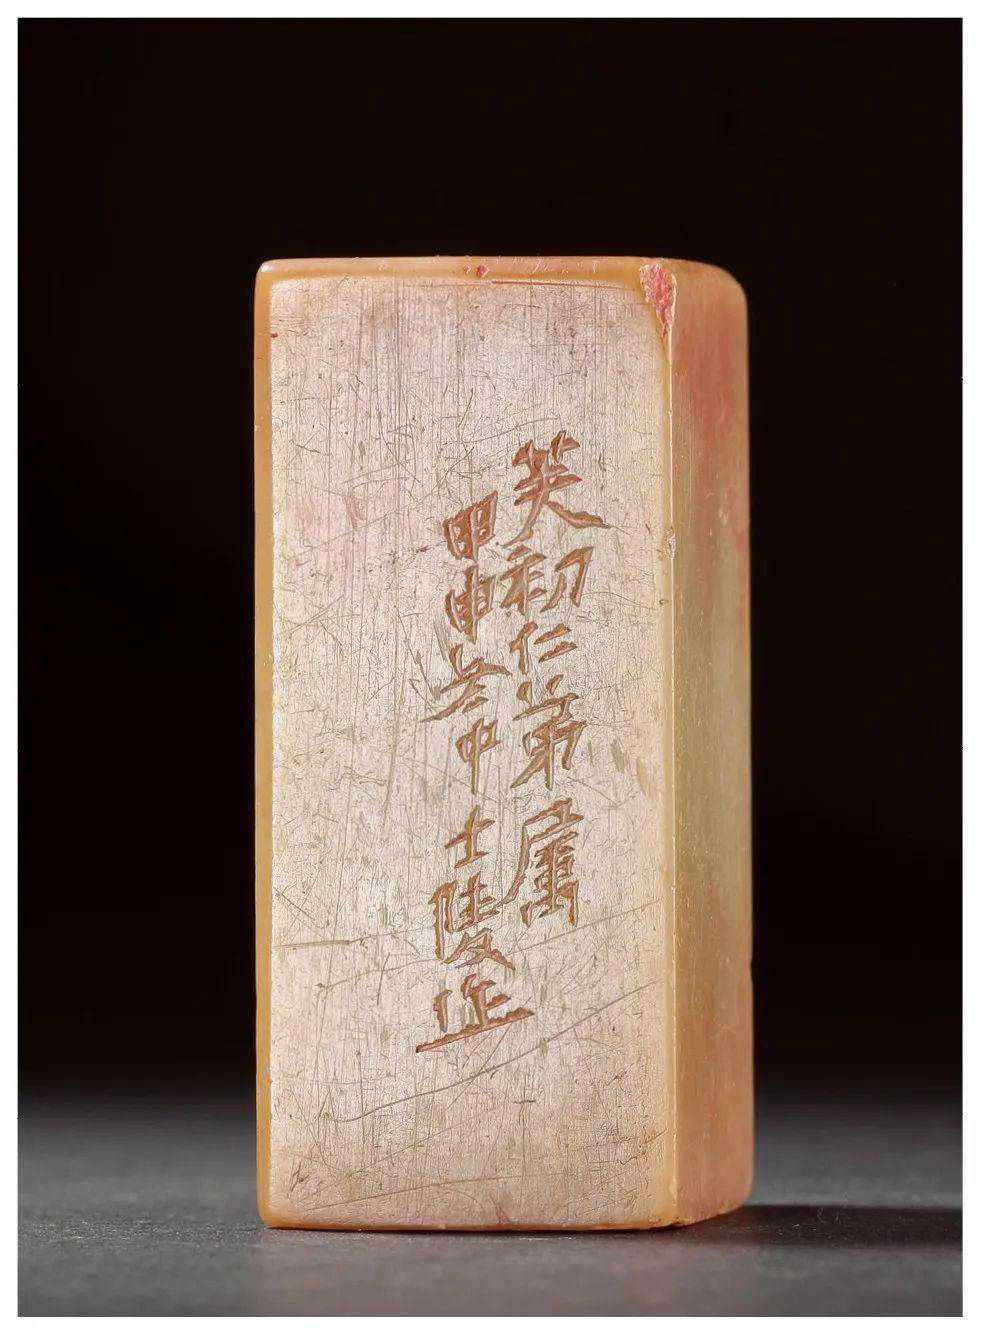 芙初仁弟属
甲申冬中士陵作